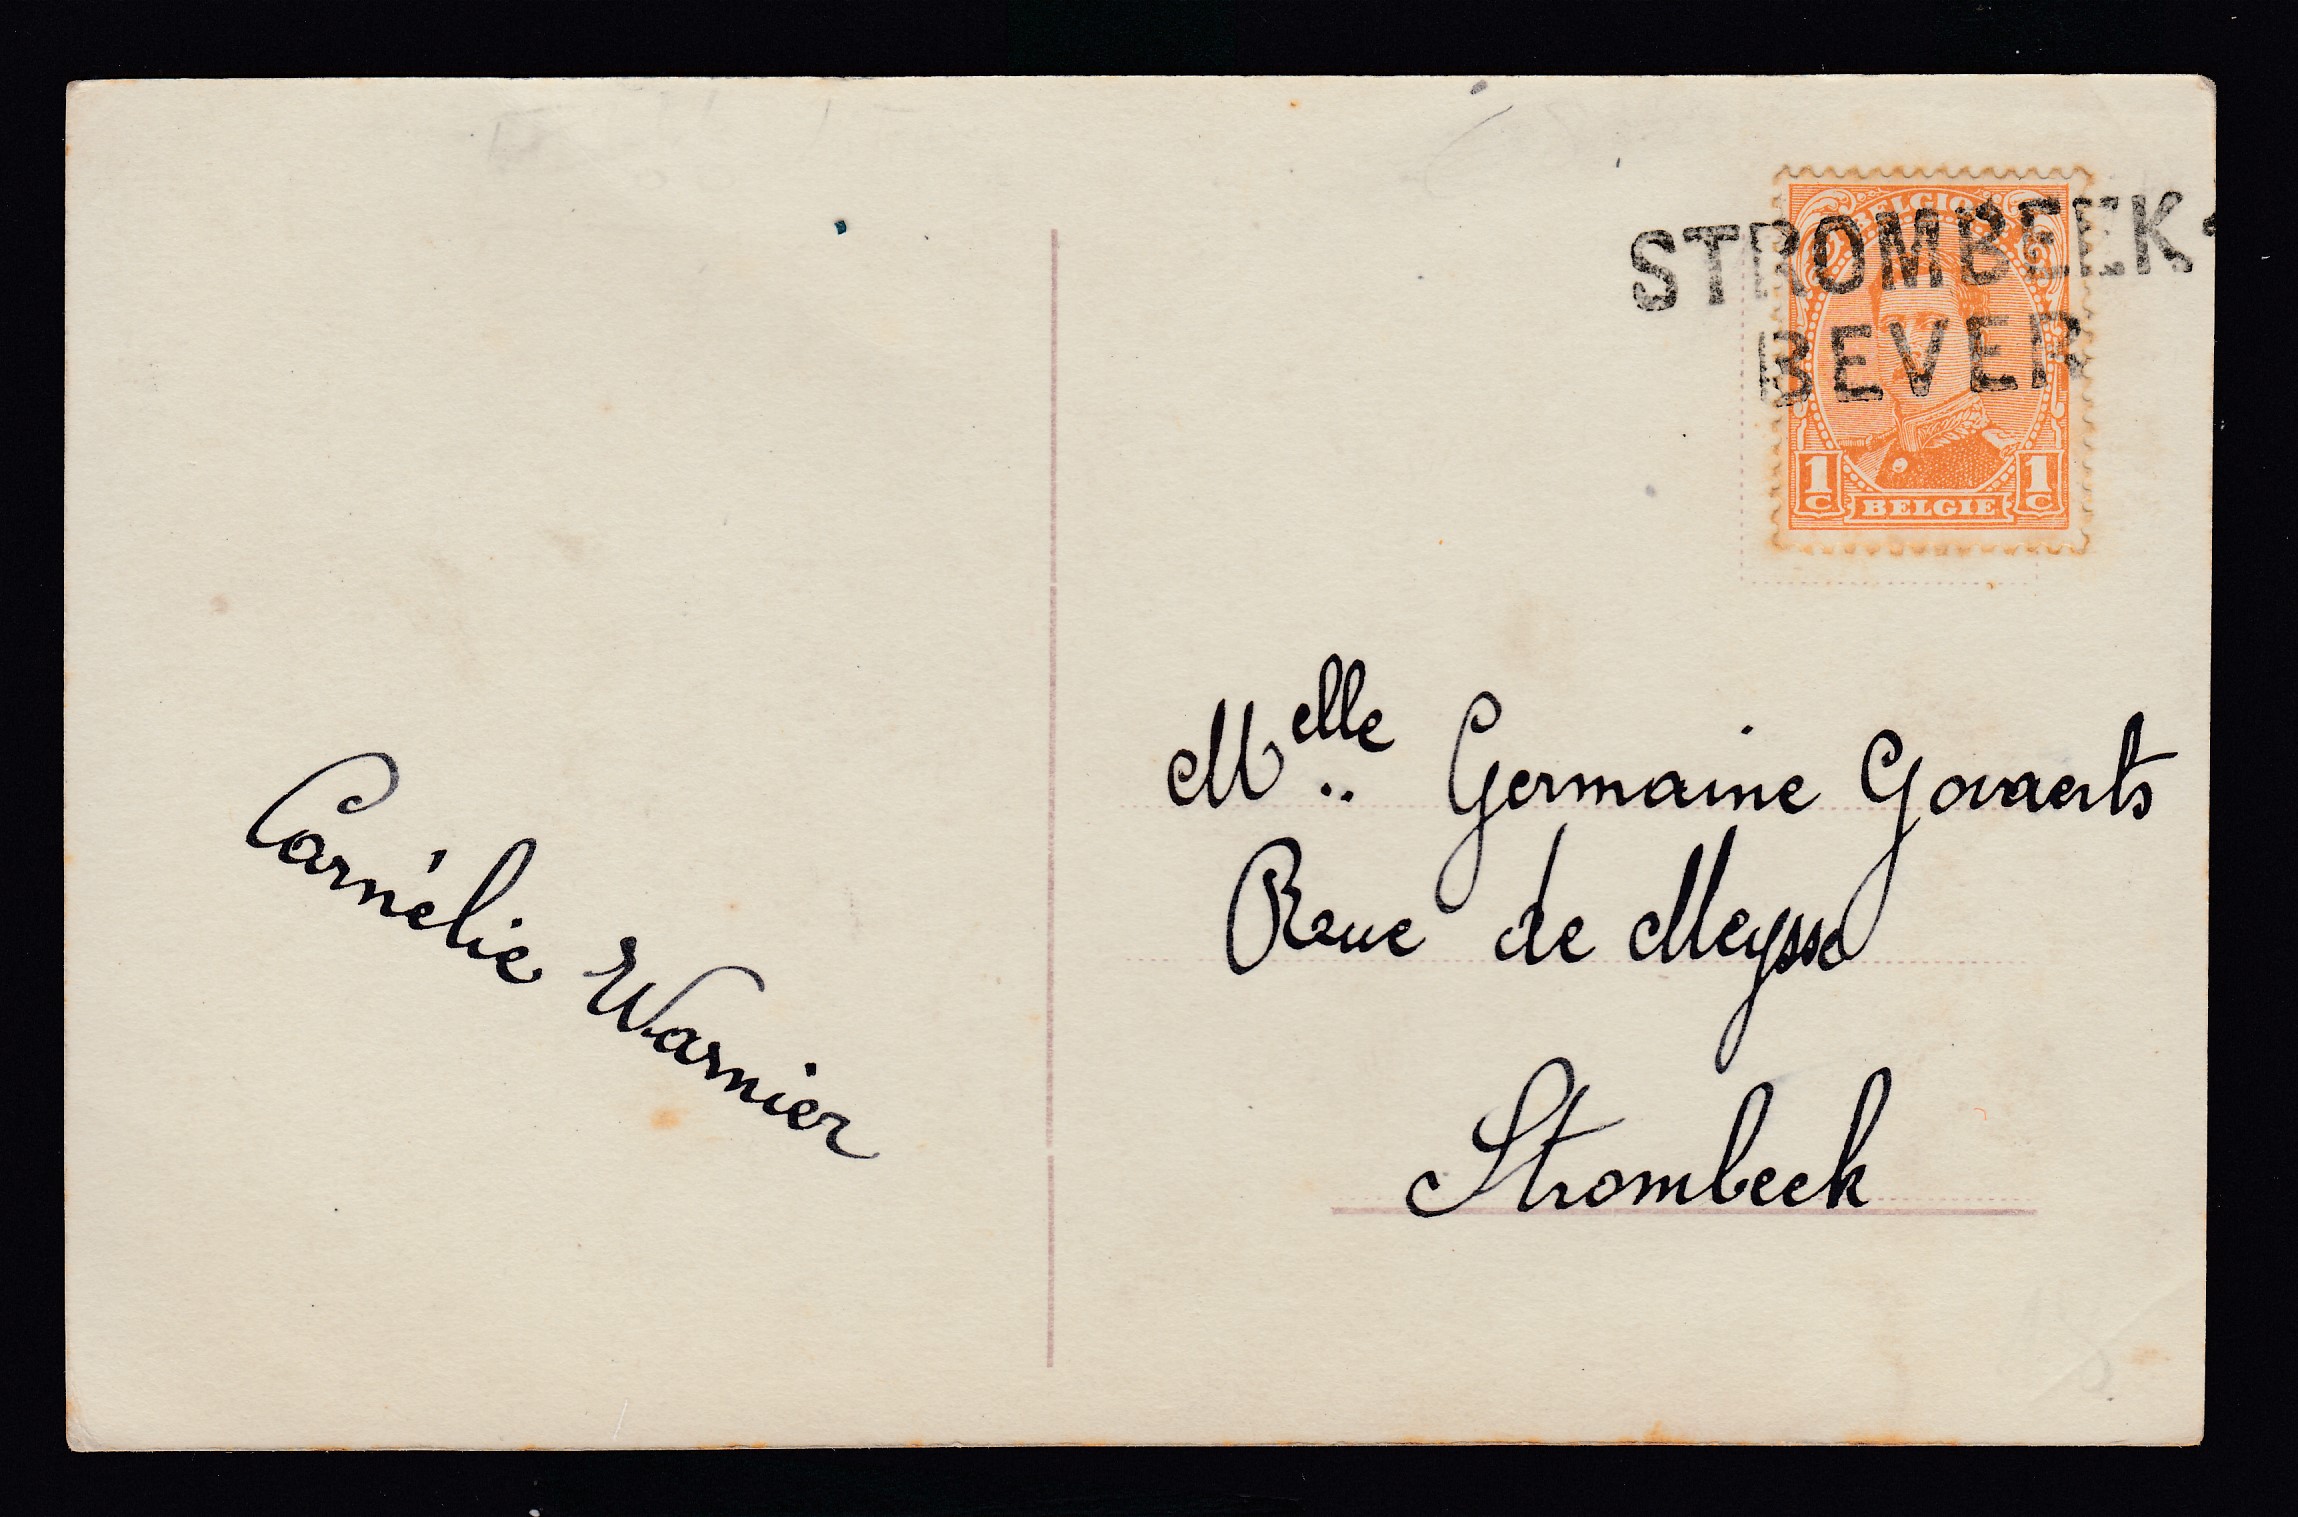 STROMBEEK-
BEVER
BELGIQUE
1 C BELGIE 1 C
Melle Germaine Govaerts
Rue de Meysse
Strombeek
Cornélie Warnier